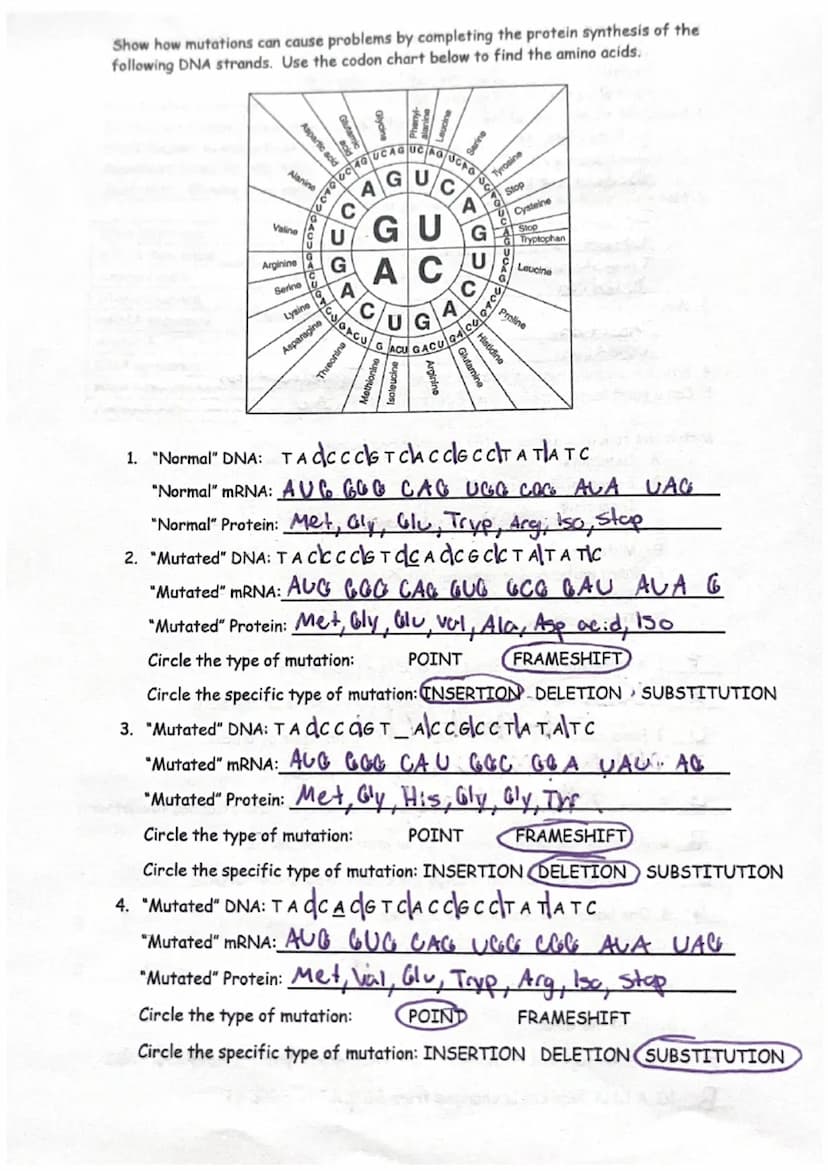 Show how mutations can cause problems by completing the protein synthesis of the
following DNA strands. Use the codon chart below to find the amino acids.
Alanine
Aspartic acid
Glutamic acid
Glycine
Phenyl-
alanine
Leucine
Serine
Tyrosine
Stop
Cysteine
Stop
Tryptophan
Leucine
Proline
Histidine
Glutamine
Arginine
Isoleucine
Methionine
Threonine
Asparagine
Lysine
Serine
Arginine
Valine
G U
A C
1. "Normal" DNA: T A C C C C G T C A C C G C C T A T A T C
"Normal" mRNA: AUG GGG CAG UGG CGG AUA UAG
"Normal" Protein: Met, Gly, Glu, Tryp, Arg, Iso, Stop
2. "Mutated" DNA: T A C C C C G T C C A C C G C C T A T A T C
"Mutated" mRNA: AUG GGG CAG GUG GCG GAU AUA G
"Mutated" Protein: Met, Gly, Glu, Val, Ala, Asp acid, Iso
Circle the type of mutation: POINT FRAMESHIFT
Circle the specific type of mutation: INSERTION DELETION SUBSTITUTION
3. "Mutated" DNA: T A C C C C G T _ A C C G C C T A T A T C
"Mutated" mRNA: AUG GGG CAU GGC GGA UAU AG
"Mutated" Protein: Met, Gly, His, Gly, Gly, Tyr
Circle the type of mutation: POINT FRAMESHIFT
Circle the specific type of mutation: INSERTION DELETION SUBSTITUTION
4. "Mutated" DNA: T A C C A C G T C A C C G C C T A T A T C
"Mutated" mRNA: AUG GUG CAG UGG CGG AUA UAG
"Mutated" Protein: Met, Val, Glu, Tryp, Arg, Iso, Stop
Circle the type of mutation: POINT FRAMESHIFT
Circle the specific type of mutation: INSERTION DELETION SUBSTITUTION